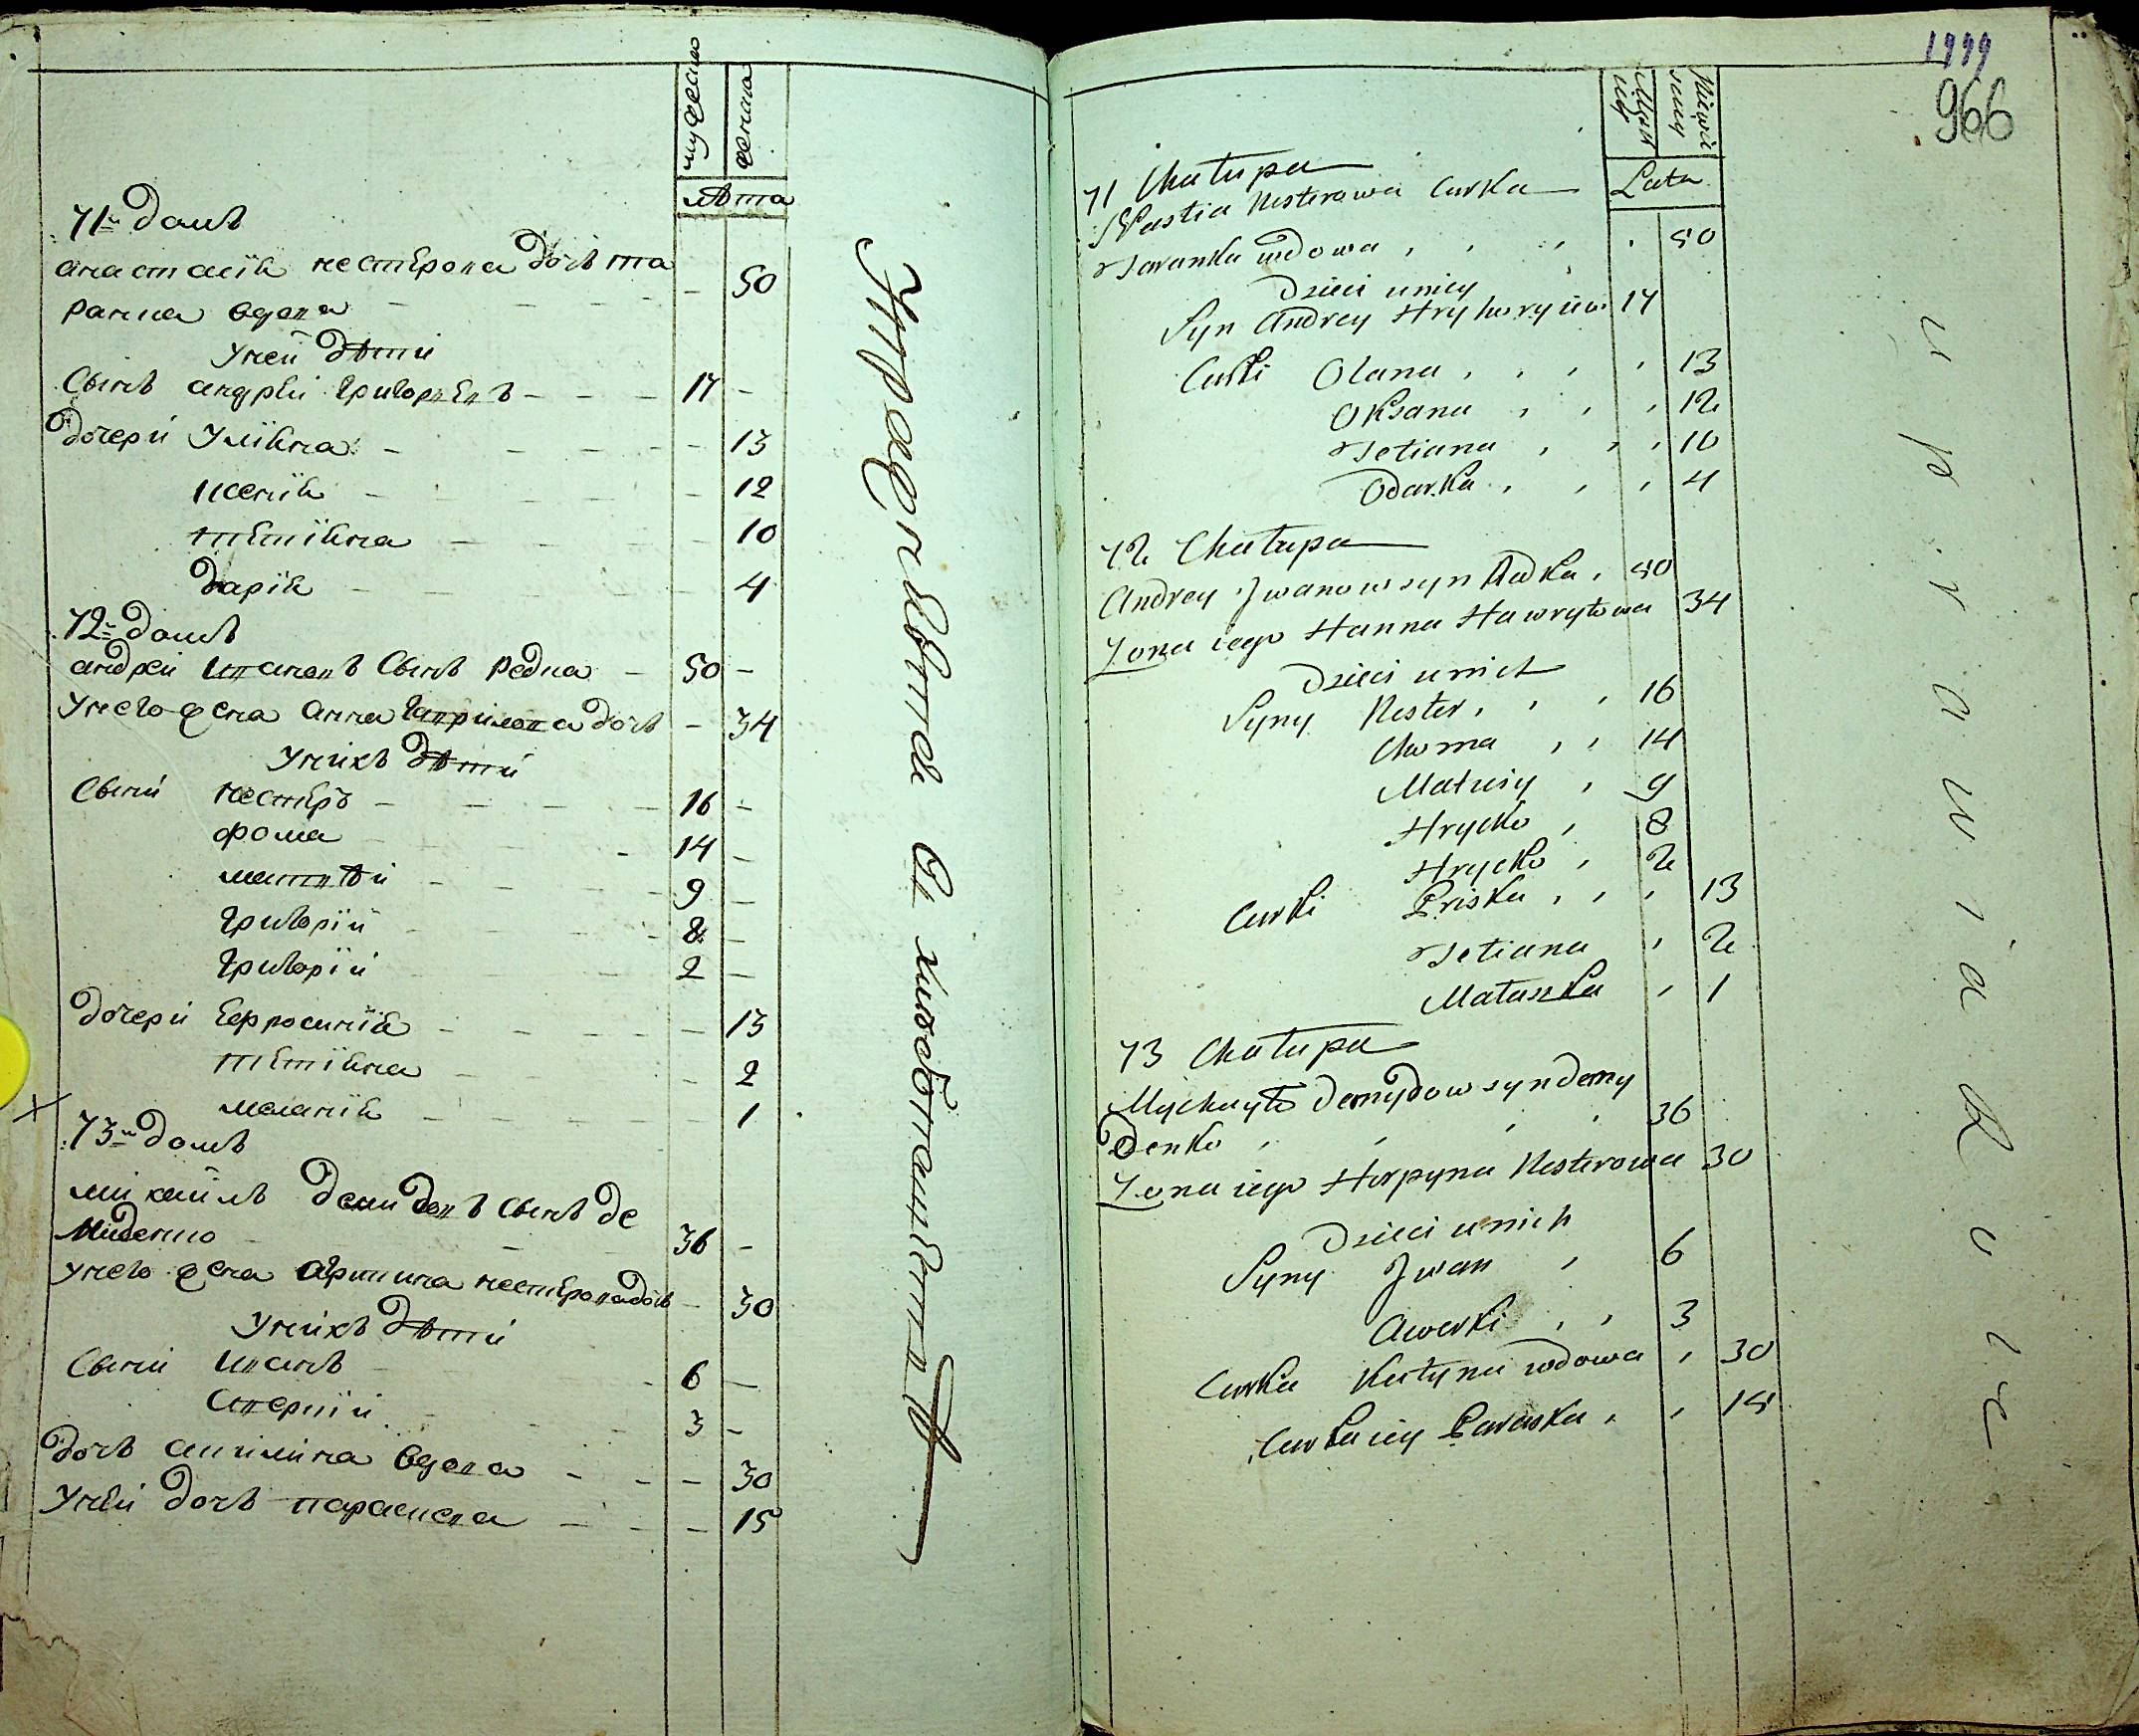 мужеска
женска
лѣта
71й домъ
анастасия нестерова дочь та
ранка вдова - - - - - 50
Уней дѣти
Сынъ андрей григориевъ - - - 17 -
дочери Улияна - - - - - 13
ксения - - - - 12
тетияна - - - - 10
дария - - - - 4
72й домъ
андрей ивановъ сынъ редка - 50 -
Унего жена анна гаврилова дочь - 34
Унихъ дѣти
Сыни нестеръ - - - - 16 -
фома - - 14 -
матвѣй - - - 9 -
григорий - - - 8 -
григорий - - - 2 -
дочери евросиния - - - - 13
тетияна - - - 2
мелания - - - - 1
73й домъ
михайлъ демидовъ сынъ де
миденко - - - 36 -
унего жена агрипина нестеровадочь - 30
Унихъ дѣти
Сыни иванъ - - 6 -
аверкий - - - 3 -
дочь акилина вдова - - - 30
Уней дочь параскева - - - 15
1999
966
Męzk
iey
Lata
71 Chałupa
Nastia Nesterowa Curka
Taranka wdowa , , , , 50
Dzieci uniey
Syn Andrey Hryhoryiew 17
Curki Olana , , , , 13
Oksana , , , 12
Tetiana , , , 10
Odarka , , , 4
72 Chałupa
Andrey Jwanow syn Redka , 50
Zona iego Hanna Hawryłowa 34
Dzieci unich
Syny Nester , , , 16
Choma , , 14
Matwiy , 9
Hrycko , 8
Hrycko , 2
Curki Priska , , , 13
Tetiana , 2
Małaszka , 1
73 Chałupa
Mychayło Demydow syn Demy
Denko , , , , 36
Zona iego Horpyna Nesterowa 30
Dzieci unich
Syny Jwan , 6
Awerki , , 3
Curka Kutyna wdowa , 30
Curka iey Paraska , , 15